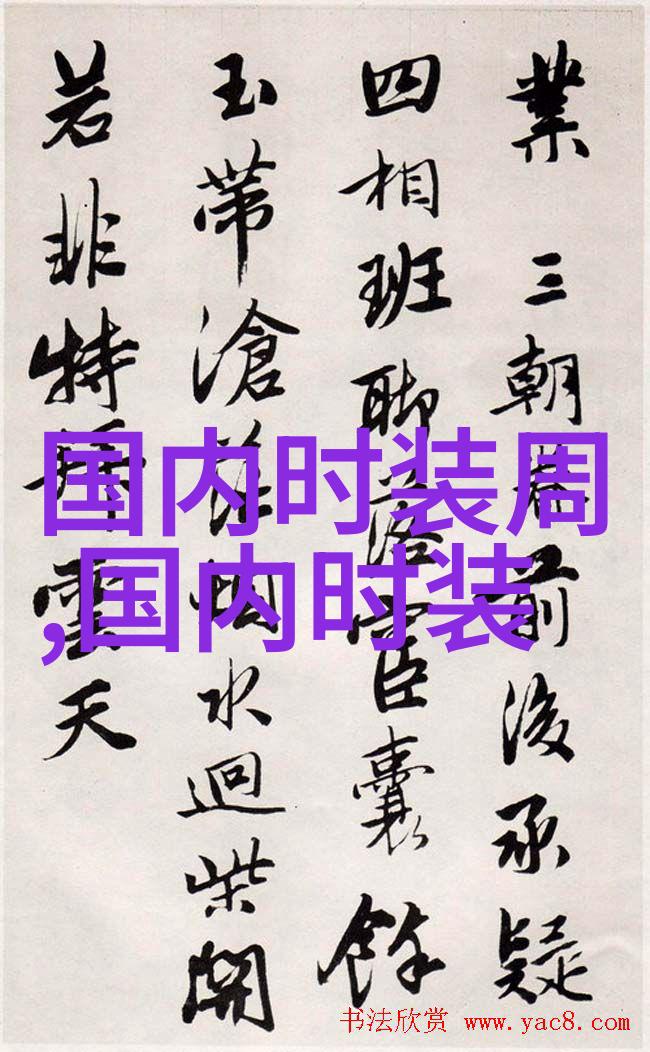 業 三朝前後承疑
四相班聯落宦囊餘
玉帶滄烟水迴柴關
若非特天
国内时装周
,国内时装
书法欣赏 www.yac8.com